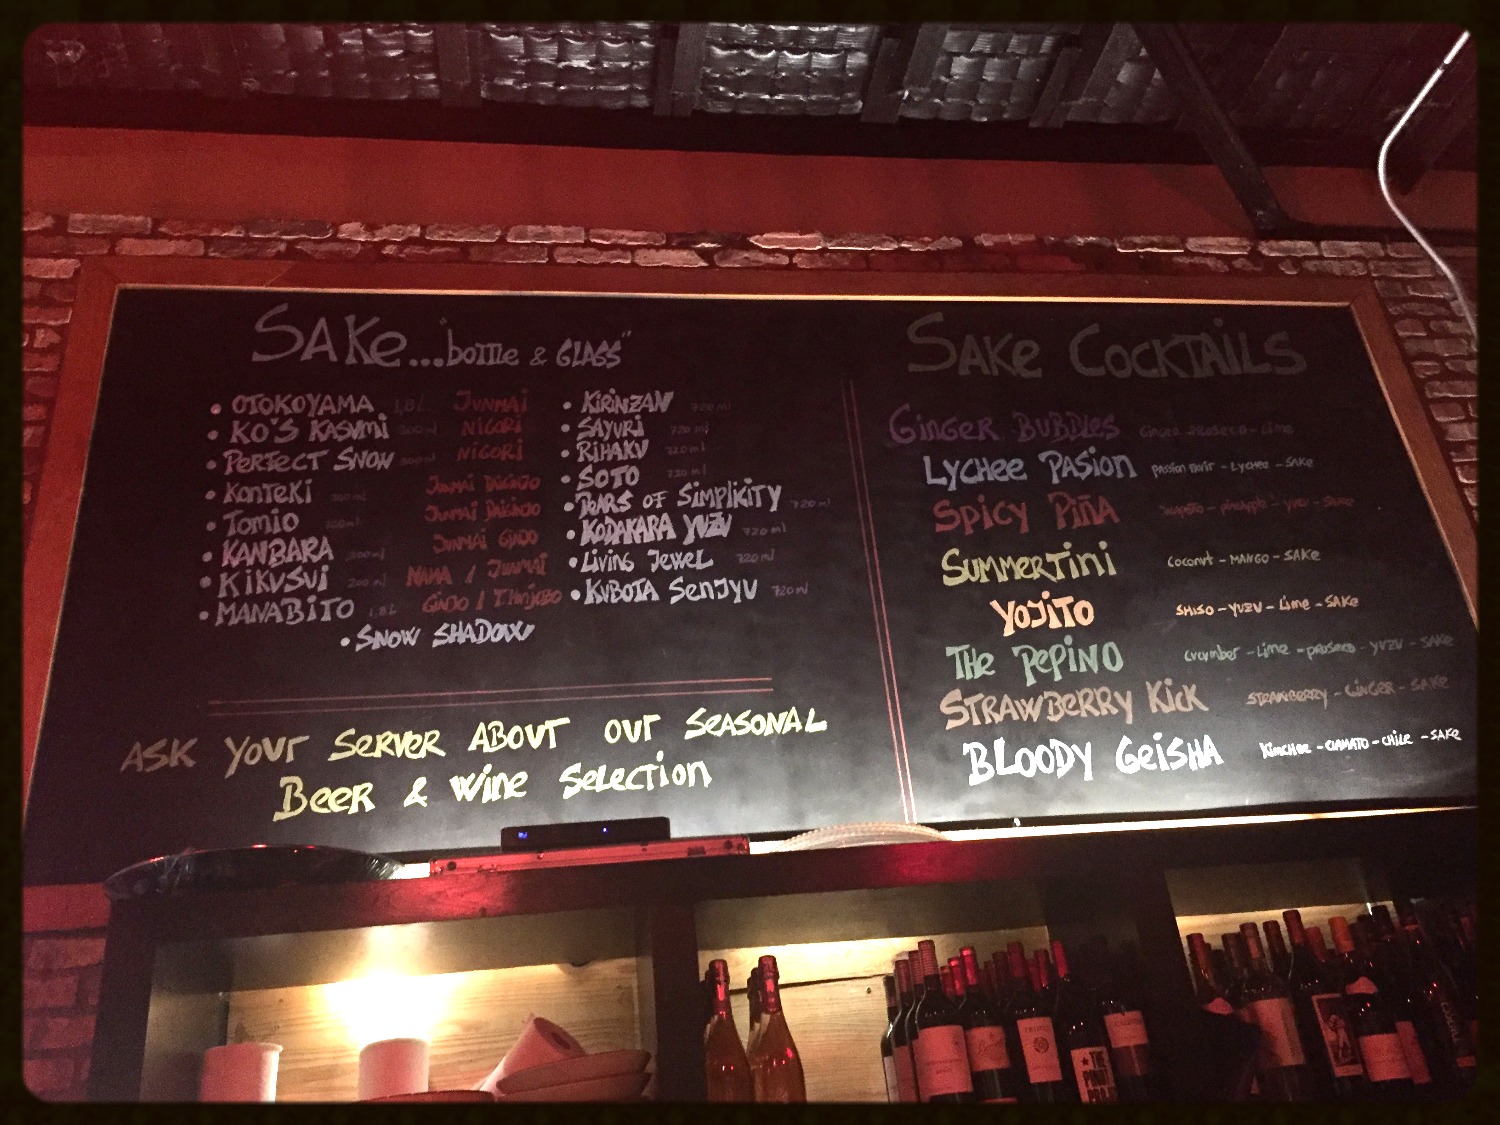 SAKe..."bottle & GLASS"
• OTOKOYAMA 1,8L JUNMAI
• KO'S KASUMI 300ml NIGORI
• PERFECT SNOW 300ml NIGORI
• KONTEKI 300ml JUNMAI DAIGINJO
• TOMIO JUNMAI DAIGINJO
• KANBARA 300ml JUNMAI GINJO
• KIKUSUI 200ml NAMA / JUNMAI
• MANABITO 1,8L GINJO /
• KIRINZAN 720ml
• SAYURI 720ml
• RIHAKU 720ml
• SOTO 720ml
• TEARS OF SIMPLICITY 720ml
• KODAKARA YUZU 720ml
• LIVING JEWEL 720ml
• KUBOTA SENJYU 720ml
• SNOW SHADOW
ASK YOUR SERVER ABOUT OUR SEASONAL
BEER & WINE SELECTION
SAKE COCKTAILS
GINGER BUBBLES GINGER - PROSECO - LIME
LYCHEE PASION PASSION FRUIT - LYCHEE - SAKE
SPICY PIÑA JALAPEÑO - PINEAPPLE - YUZU - SAKE
SUMMERTINI COCONUT - MANGO - SAKE
YOJITO SHISO - YUZU - LIME - SAKE
THE PEPINO CUCUMBER - LIME - PROSECO - YUZU - SAKE
STRAWBERRY KICK STRAWBERRY - GINGER - SAKE
BLOODY GEISHA KIMCHEE - CLAMATO - CHILE - SAKE